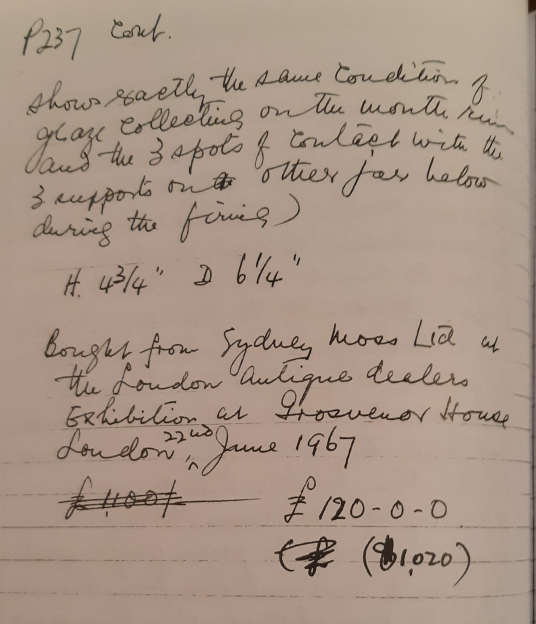 P237 Cont.
shows exactly the same condition of
glaze collecting on the mouth rim
and the 3 spots of contact with the
3 supports on other jar below
during the firing)
H. 4 3/4" D 6 1/4"
Bought from Sydney Moss Ltd at
the London antique dealers
Exhibition at Grosvenor House
London, 22nd June 1967
£1,100/
£120-0-0
($1,020)